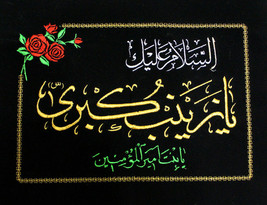 السلام علیك
یا زینب کبری (س)
یا بنت امیرالمؤمنین